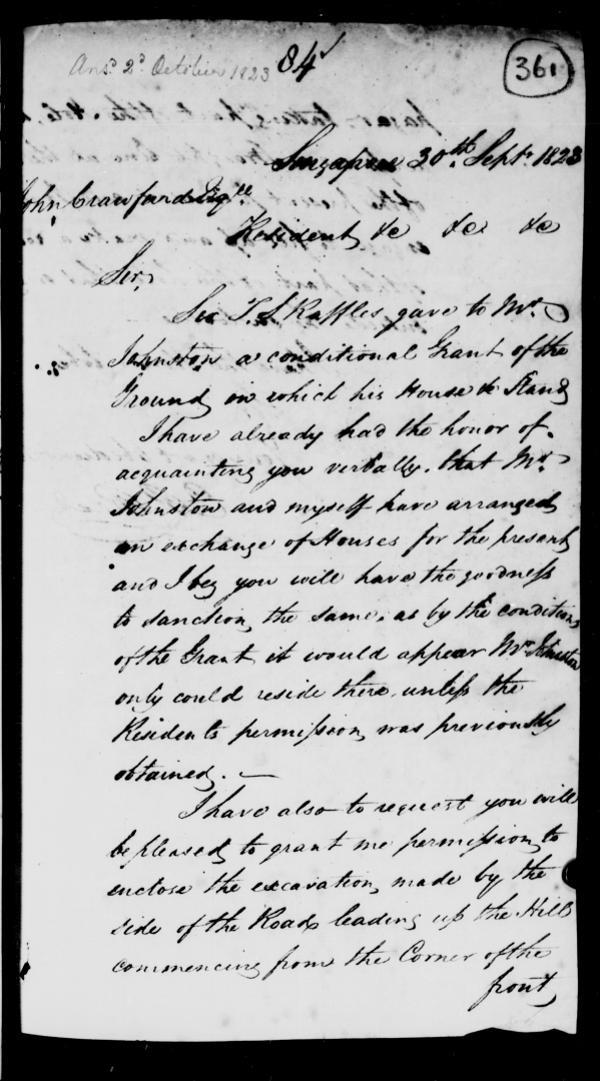 Ansd. 2d October 1823
84
361
Singapore 30th Septr. 1823
John Crawfurd Esqre.
Resident &c &c &c
Sir,
Sir T. S. Raffles gave to Mr.
Johnston a conditional Grant of the
Ground, on which his House &c Stand
I have already had the honor of
acquainting you verbally, that Mr.
Johnston and myself have arranged
an exchange of Houses for the present,
and I beg you will have the goodness
to sanction the same, as by the conditions
of the Grant, it would appear Mr. Johnston
only could reside there, unless the
Residents permission, was previously
obtained. —
I have also to request you will
be pleased to grant me permission, to
enclose the excavation, made by the
side of the Road leading up the Hill
commencing from the Corner of the
front,